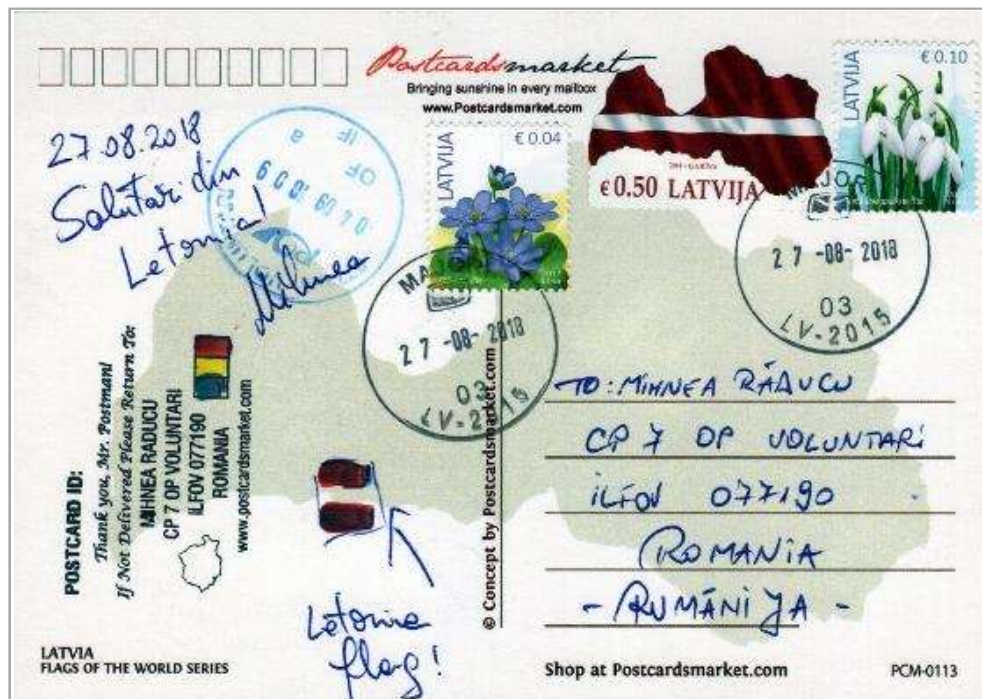 Postcardsmarket
Bringing sunshine in every mailbox
www.Postcardsmarket.com
27.08.2018
Salutari din
Letonia!
Mihnea
04 09
OF
IF
a
LATVIJA
€ 0.04
€ 0.50 LATVIJA
LATVIJA
€ 0.10
27-08-2018
03
LV-2015
MAJORI
27-08-2018
03
LV-2015
POSTCARD ID:
Thank you, Mr. Postman!
If Not Delivered Please Return To:
MIHNEA RADUCU
CP 7 OP VOLUNTARI
ILFOV 077190
ROMANIA
www.postcardsmarket.com
© Concept by Postcardsmarket.com
TO: MIHNEA RĂDUCU
CP 7 OP VOLUNTARI
ILFOV 077190
ROMANIA
- RUMĀNIJA -
Letonia
flag!
LATVIA
FLAGS OF THE WORLD SERIES
Shop at Postcardsmarket.com
PCM-0113